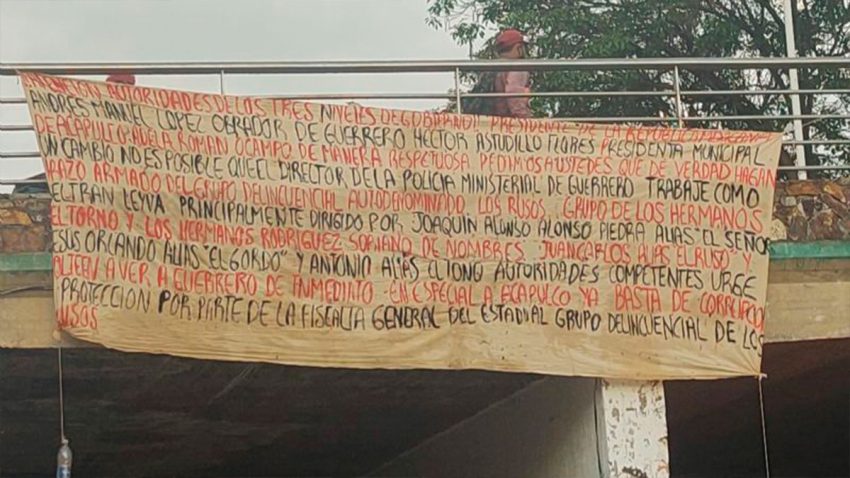 ATENCION AUTORIDADES DE LOS TRES NIVELES DE GOBIERNO!! PRESIDENTE DE LA REPUBLICA
ANDRES MANUEL LOPEZ OBRADOR DE GUERRERO HECTOR ASTUDILLO FLORES PRESIDENTA MUNICIPAL
DE ACAPULCO ADELA ROMAN OCAMPO DE MANERA RESPETUOSA PEDIMOS A USTEDES QUE DE VERDAD HAGAN
UN CAMBIO NO ES POSIBLE QUE EL DIRECTOR DE LA POLICIA MINISTERIAL DE GUERRERO TRABAJE COMO
RAZO ARMADO DEL GRUPO DELINCUENCIAL AUTODENOMINADO LOS RUSOS. GRUPO DE LOS HERMANOS
ELTRAN LEYVA PRINCIPALMENTE DIRIGIDO POR JOAQUIN ALONSO ALONSO PIEDRA ALIAS "EL SEÑOR
EL TORNO Y LOS HERMANOS RODRIGUEZ SORIANO DE NOMBRES JUAN CARLOS ALIAS "EL RUSO" Y
ESUS ORLANDO ALIAS "EL GORDO" Y ANTONIO ALIAS EL TONG AUTORIDADES COMPETENTES URGE
A VER A GUERRERO DE INMEDIATO EN ESPECIAL A ACAPULCO YA BASTA DE CORRUPCIO
PROTECCION POR PARTE DE LA FISCALIA GENERAL DEL ESTADI AL GRUPO DELINCUENCIAL DE LOS
USOS